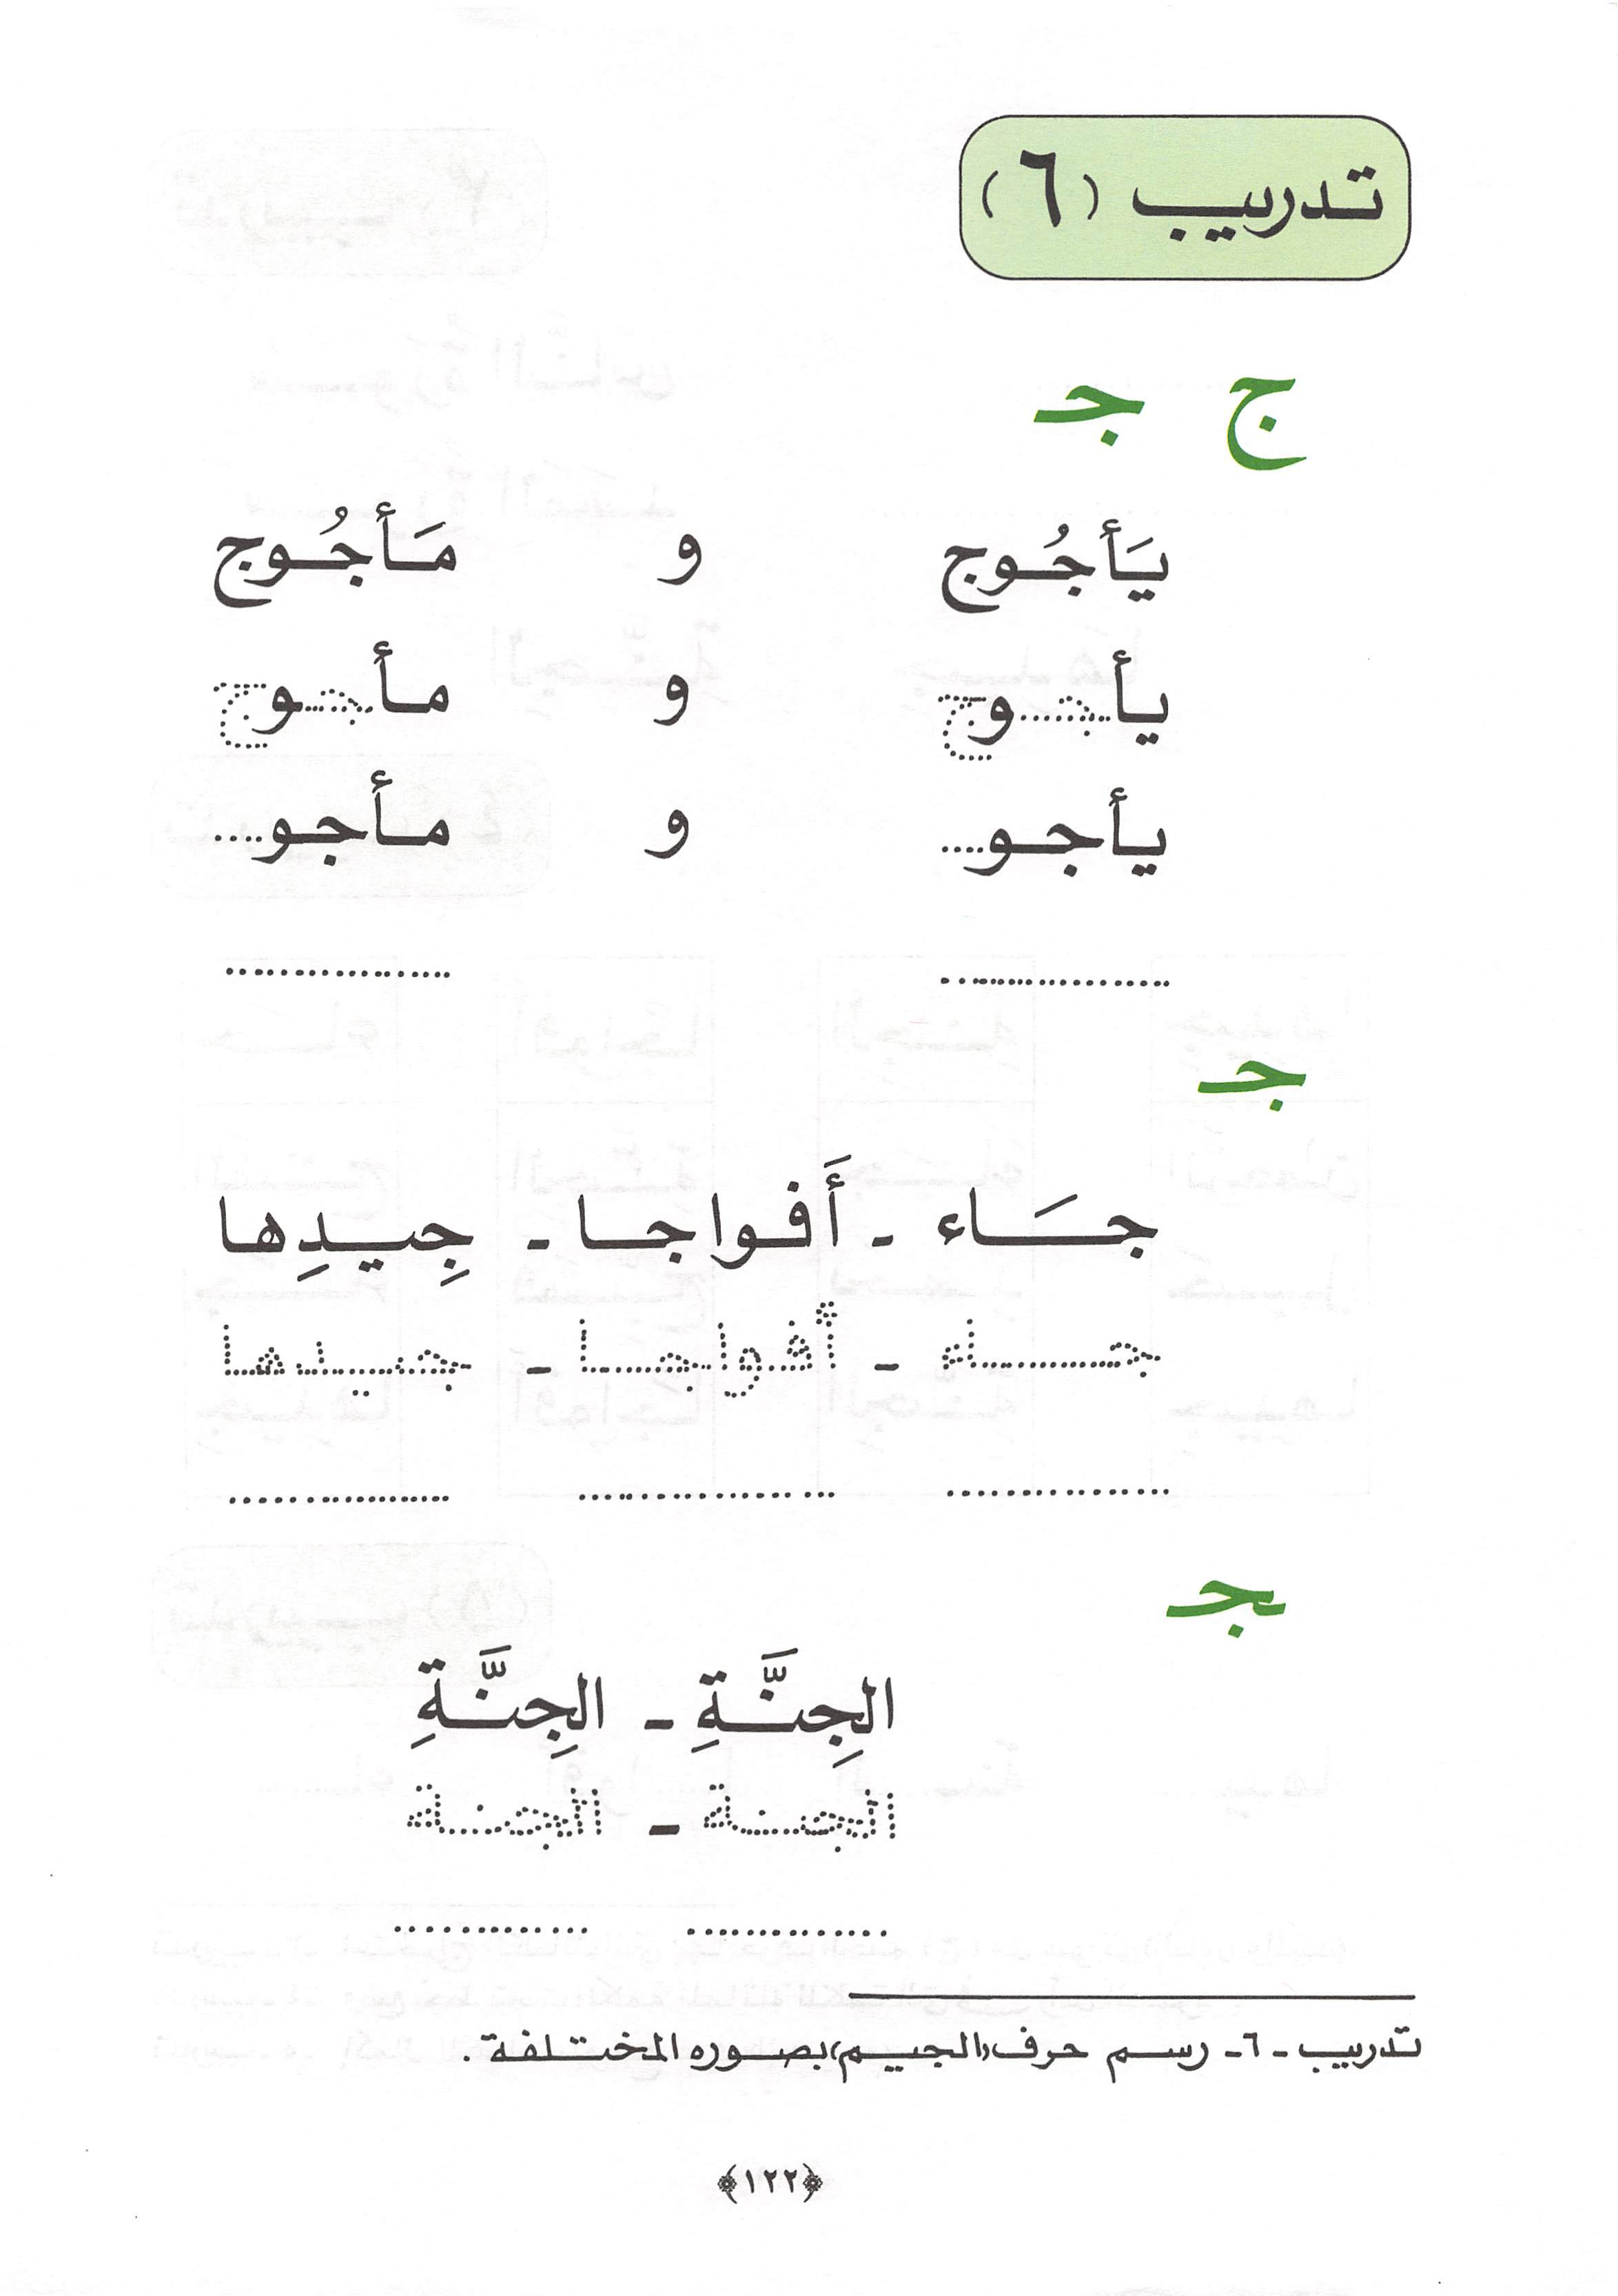 تدريب (٦)
ج جـ
يَأجُوج و مَأجُوج
يأجوج و مأجوج
يأجو.... و مأجو....
.................. ..................
جـ
جَاء - أَفواجا - جِيدِها
جاء - أفواجا - جيدها
.................. .................. ..................
ـجـ
الجِنَّةِ - الجِنَّةِ
الجنة - الجنة
.................. ..................
تدريب - ٦ - رسم حرف (الجيم) بصوره المختلفة .
﴿١٢٢﴾